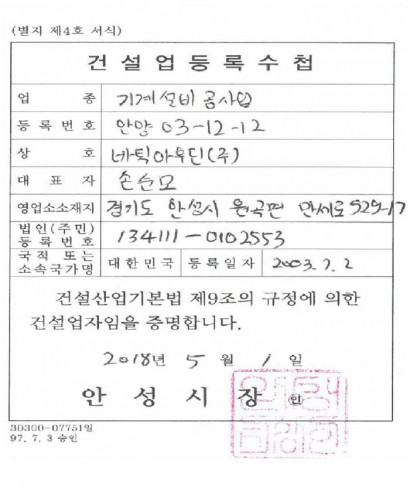 (별지 제4호 서식)
건설업등록수첩
업 종 기계설비공사업
등록번호 안양 03-12-12
상 호 네틱아우딘(주)
대 표 자 손순모
영업소소재지 경기도 안성시 원곡면 만세로 929-17
법인(주민) 등록번호 134111-0102553
국적 또는 소속국가명 대한민국 등록일자 2003.7.2
건설산업기본법 제9조의 규정에 의한
건설업자임을 증명합니다.
2018년 5월 1일
안 성 시 장 인
30300-07751일
97. 7. 3 승인